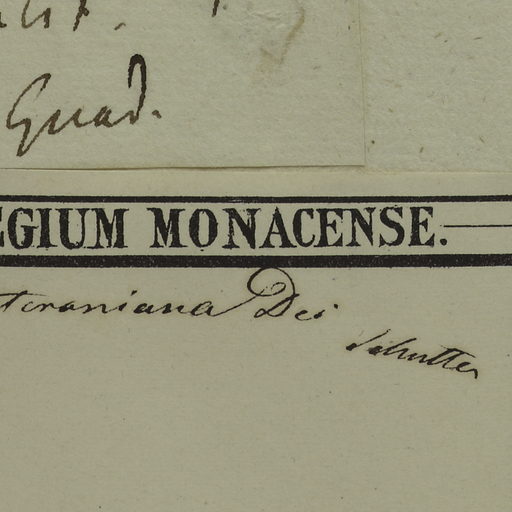 Guad.
EGIUM MONACENSE.
teraniana Dei
Schutter